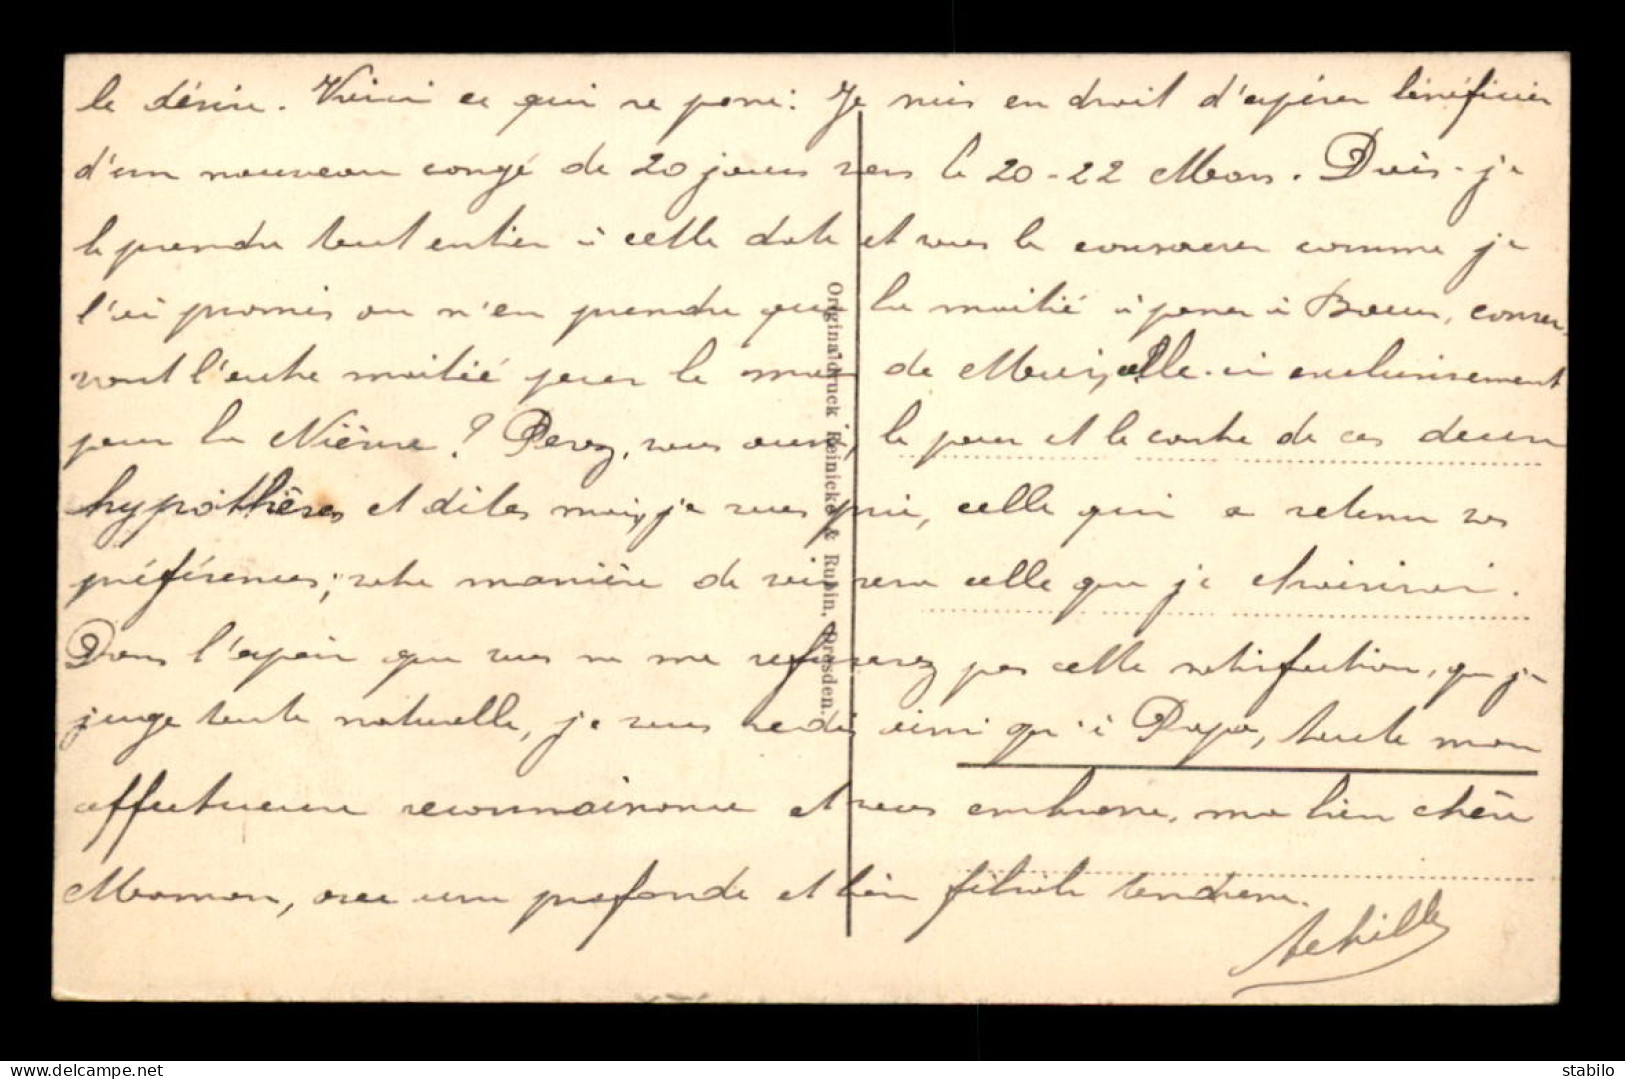 le désire. Voici ce qui se passe : Je suis en droit d'espérer bénéficier
d'un nouveau congé de 20 jours vers le 20-22 Mars. Dois-je
le prendre tout entier à cette date et vous le consacrer comme je
l'ai promis ou n'en prendre que la moitié à passer à , conser-
vant l'autre moitié pour le mois de Mai, celle-ci exclusivement
pour la Nièvre ? Pesez, vous aussi, le pour et le contre de ces deux
hypothèses et dites moi, je vous prie, celle qui a retenu vos
préférences ; votre manière de voir sera celle que je choisirai.
Dans l'espoir que vous ne me refuserez pas cette satisfaction, que je
juge toute naturelle, je vous redis ainsi qu'à Papa, toute mon
affectueuse reconnaissance et vous embrasse, ma bien chère
Maman, avec une profonde et bien filiale tendresse.
Achille
Originaldruck Reinicke & Rubin, Dresden.
www.delcampe.net
stabilo